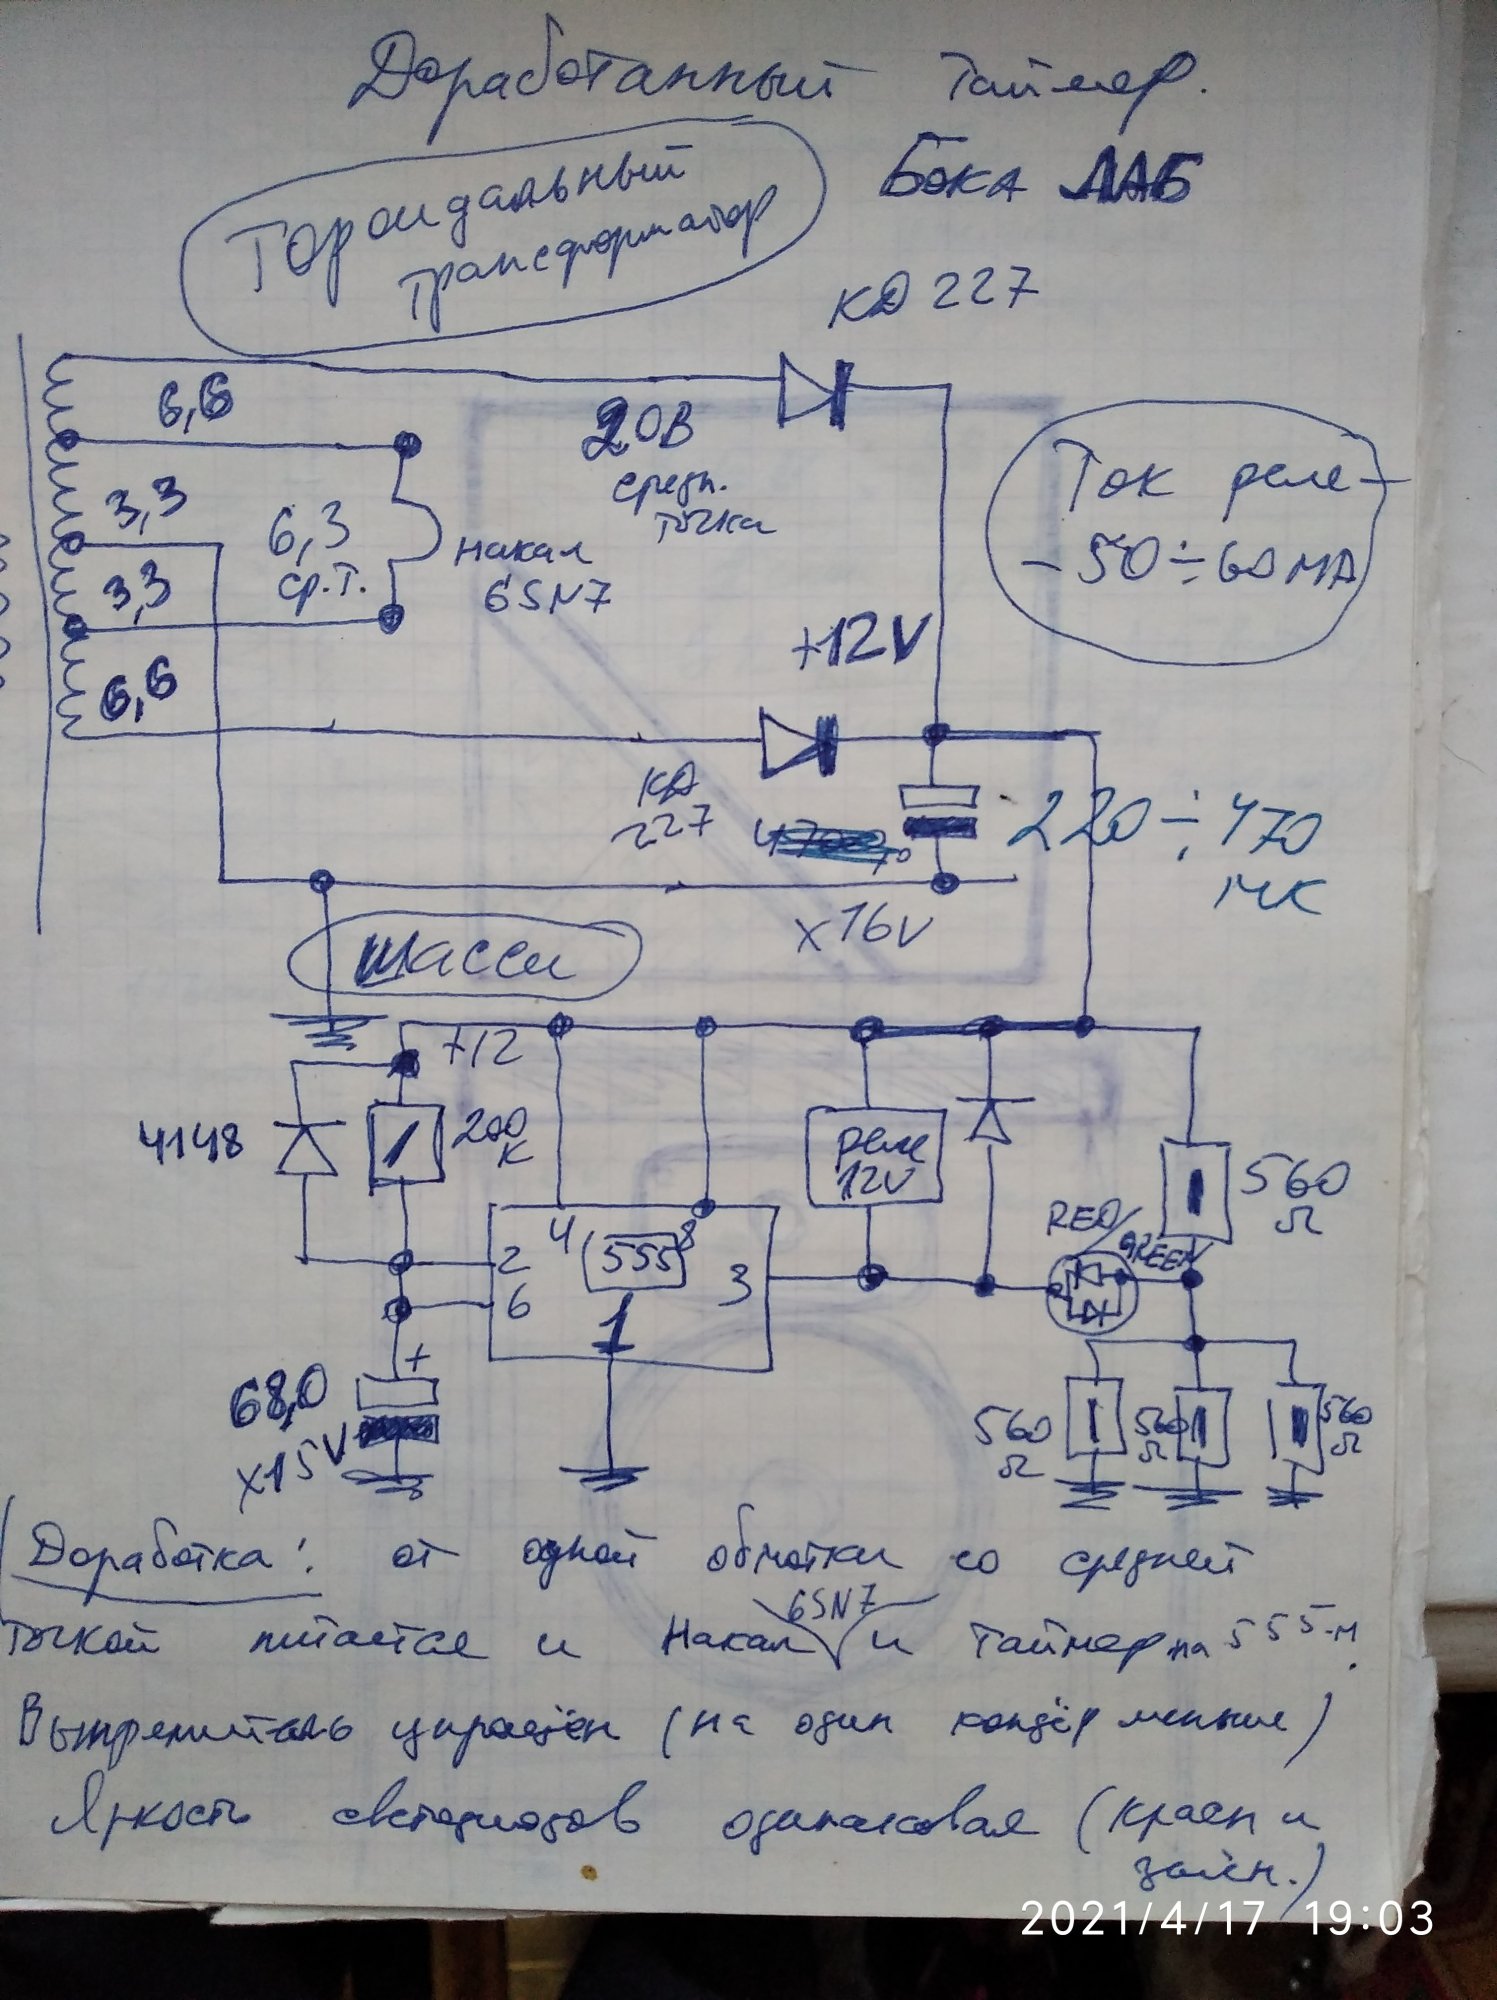 Доработанный Таймер.
Бока ЛАБ
Тороидальный
трансформатор
КД 227
6,6
20В
средн.
точка
Ток реле -
- 50 ÷ 60 МА
3,3
6,3
ср.т.
накал
6SN7
3,3
+12V
6,6
КД
227
220 ÷ 470
мк
x16V
шасси
+12
4148
200
К
реле
12V
560
Ω
RED/
GREEN
4
555
8
2
6
3
1
+
68,0
x15V
560
Ω
560
Ω
560
Ω
Доработка: от одной обмотки со средней
точкой питается и Накал 6SN7 и Таймер на 555-м.
Выпрямитель упрощён (на один кондёр меньше)
Яркость светодиодов одинаковая (красн и
зелён.)
2021/4/17 19:03